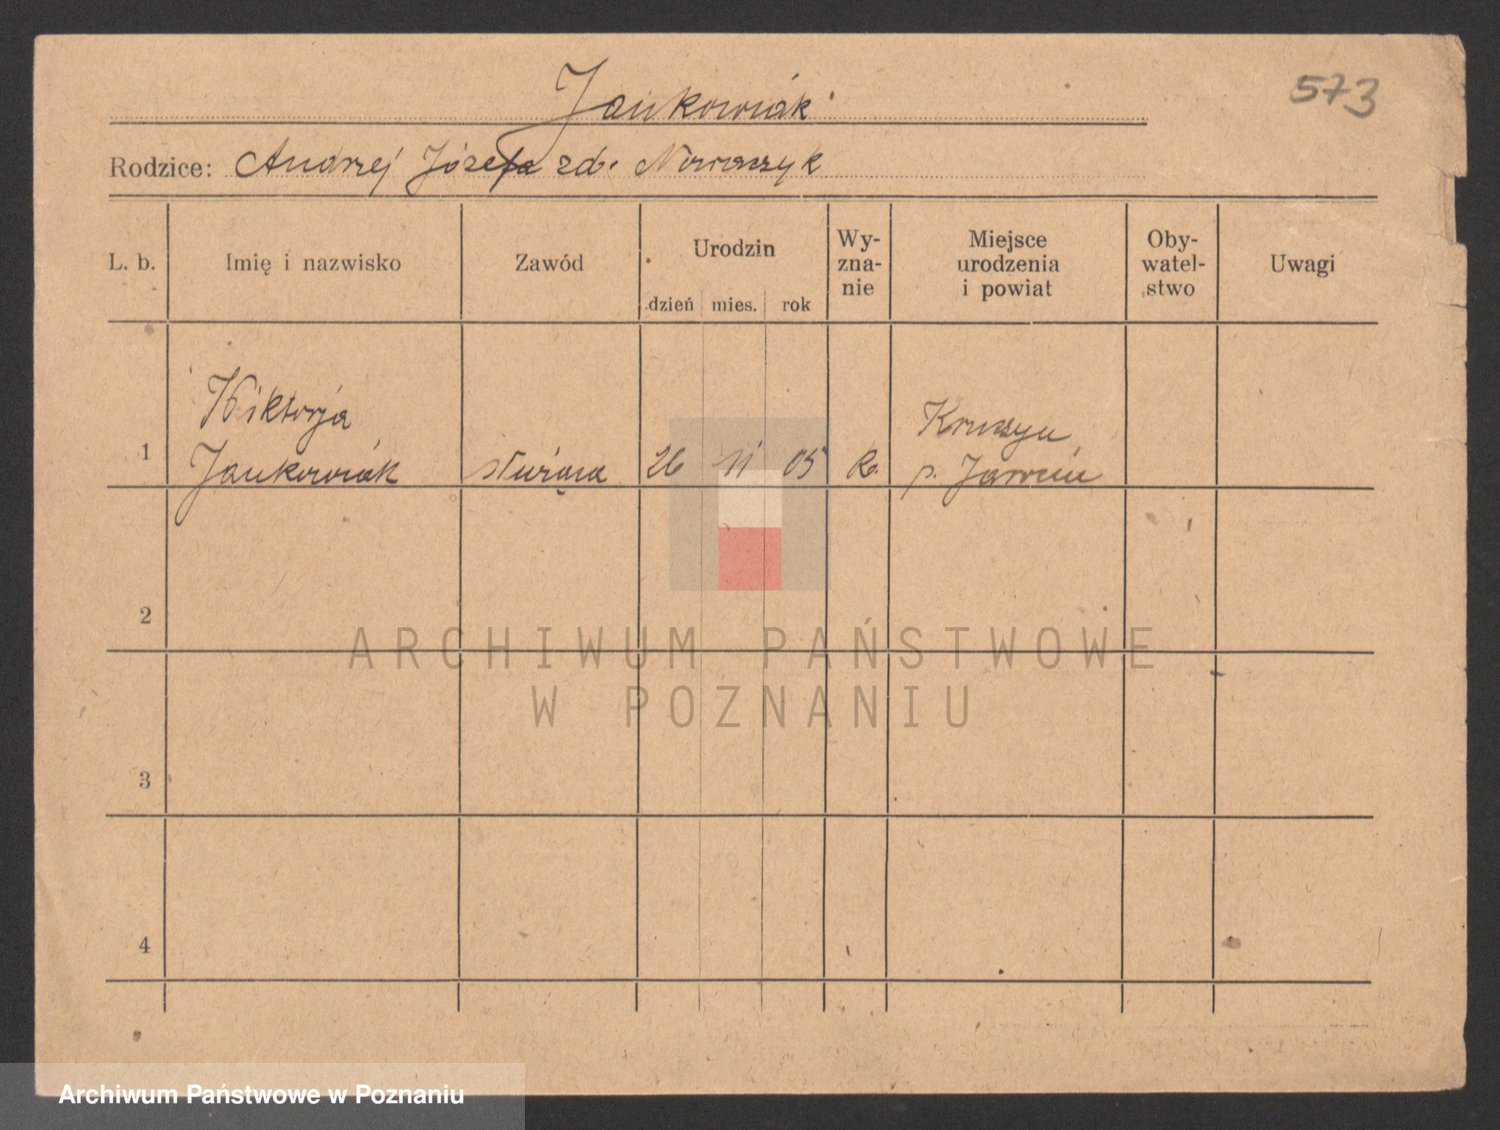 573
Jankowiak
Rodzice: Andrzej Józefa zd. Nowaczyk
L. b.
Imię i nazwisko
Zawód
Urodzin
dzień mies. rok
Wy-
zna-
nie
Miejsce
urodzenia
i powiat
Oby-
watel-
stwo
Uwagi
1
Wiktorja
Jankowiak
służąca
26 11 05
R.
p. Jarocin
2
3
4
ARCHIWUM PAŃSTWOWE
W POZNANIU
Archiwum Państwowe w Poznaniu